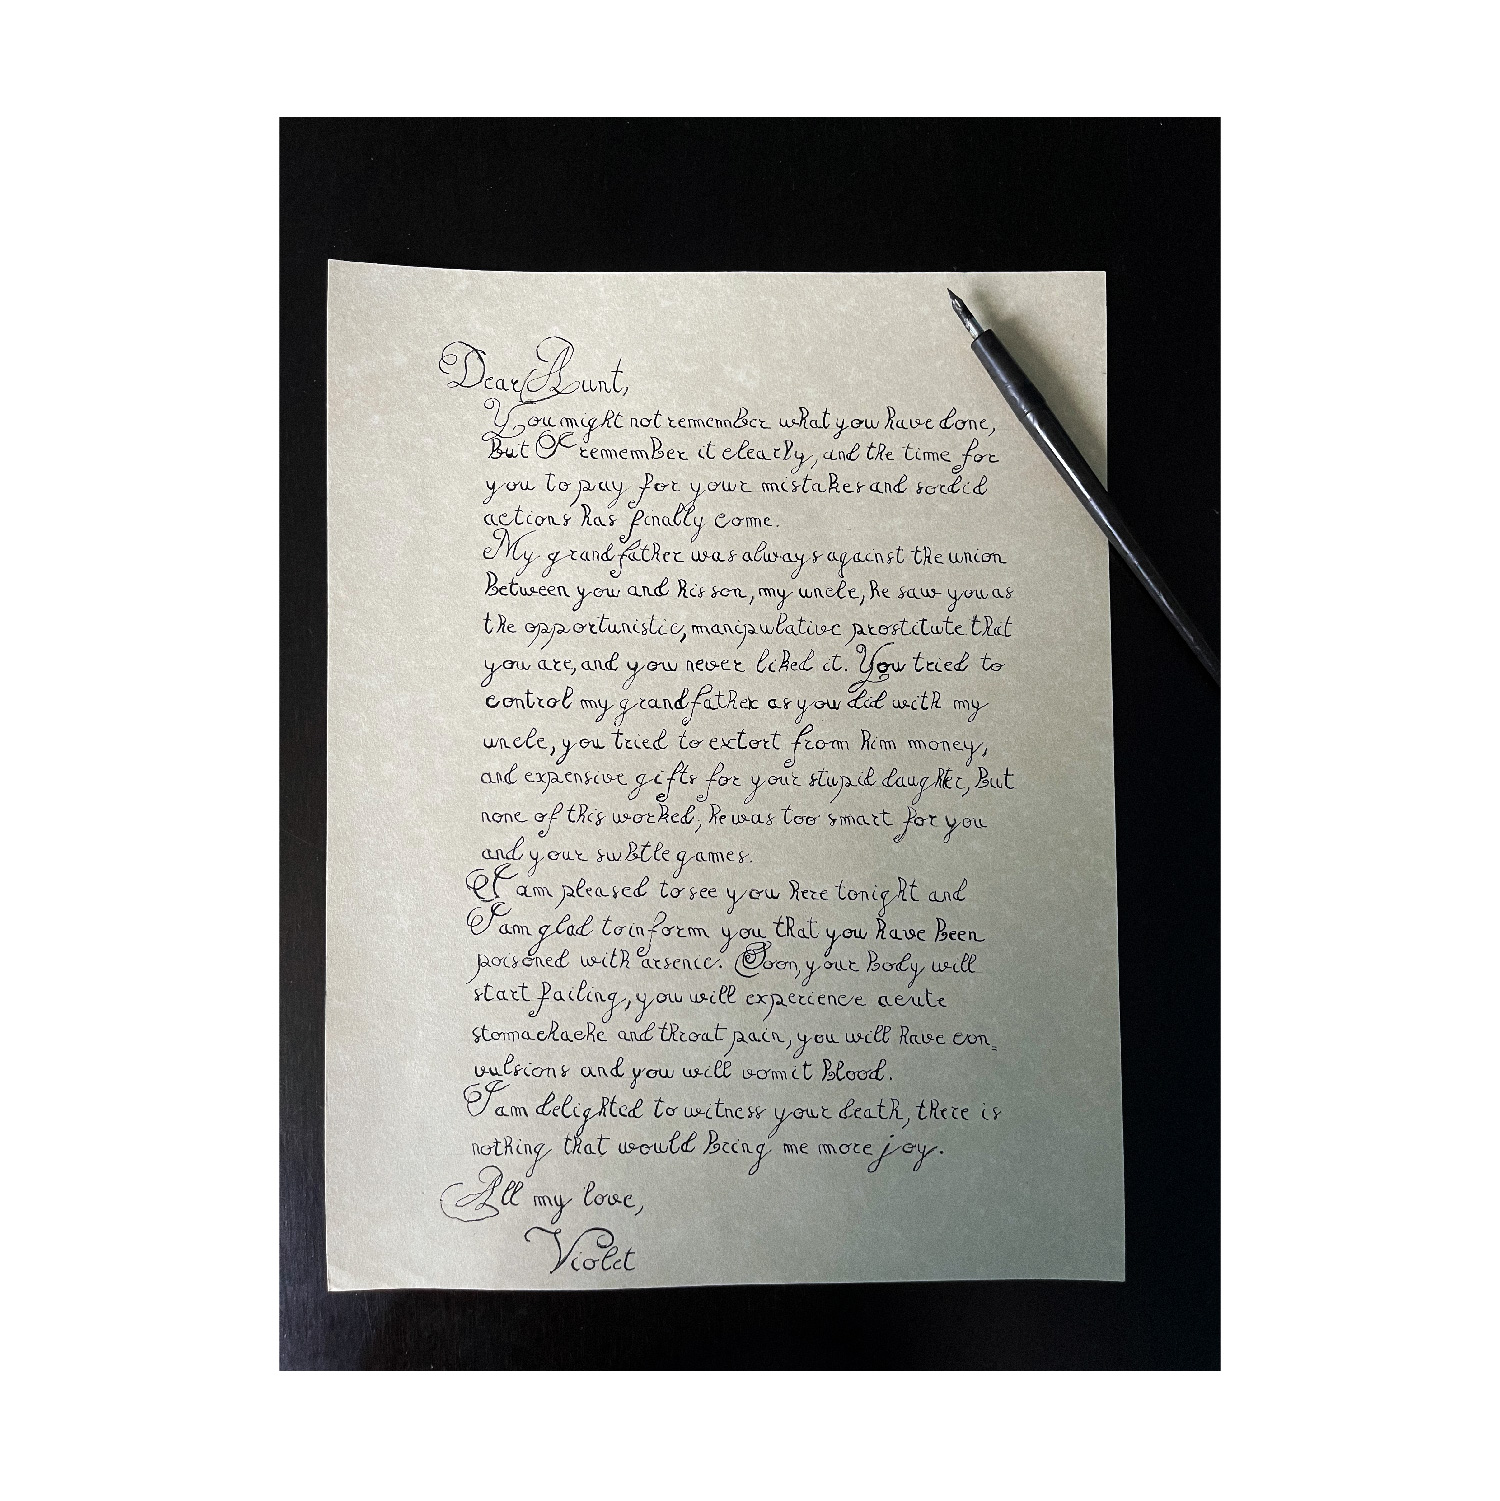 Dear Aunt,
You might not remember what you have done,
But I remember it clearly, and the time for
you to pay for your mistakes and sordid
actions has finally come.
My grandfather was always against the union
Between you and his son, my uncle, he saw you as
the opportunistic, manipulative prostitute that
you are, and you never liked it. You tried to
control my grandfather as you did with my
uncle, you tried to extort from him money,
and expensive gifts for your stupid daughter, But
none of this worked, he was too smart for you
and your subtle games.
I am pleased to see you here tonight and
I am glad to inform you that you have Been
poisoned with arsenic. Soon, your Body will
start failing, you will experience acute
stomachache and throat pain, you will have con=
vulsions and you will vomit Blood.
I am delighted to witness your death, there is
nothing that would Bring me more joy.
All my love,
Violet